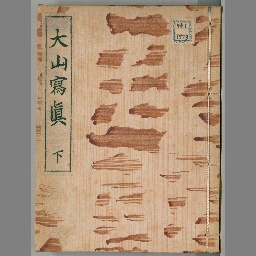 大山寫眞
下